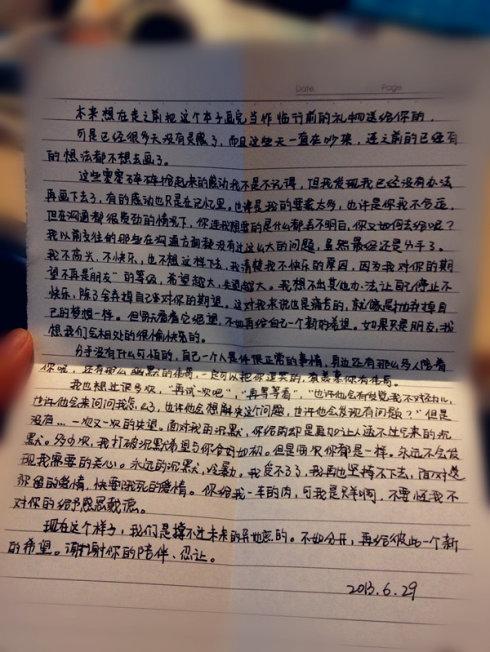 Date. Page.
本来想在走之前把这个本子画完当作临行前的礼物送给你的,
可是已经很多天没有灵感了,而且这些天一直在吵架,连之前的已经有
的想法都不想去画了。
这些零零碎碎拾起来的感动我不是不记得,但我发现我已经没有办法
再画下去了,有的感动也只是在记忆里,也许是我的要求太多,也许是你我不合适,
但在沟通都很费劲的情况下,你连我想要的是什么都弄不明白,你又如何去给呢?
我以前交往的那些在沟通方面都没有过这么大的问题,虽然最终还是分手了。
我不高兴,不快乐,也不想这样下去,我清楚我不快乐的原因,因为我对你的期
望不再是"朋友"的等级,希望越大,失望越大。我想不出其他办法让自己停止不
快乐,除了舍弃自己对你的期望。这对我来说也是痛苦的,就像是扼杀掉自
己的梦想一样。但与其看着它绝望,不如再给自己一个新的希望。如果只是朋友,我
想我们会相处的很愉快的。
分手没有什么可怕的,自己一个人是件很正常的事情,身边还有那么多人陪着
你呢,还有那么
我也想过很多次,"再试一次吧","再等等看","也许他会有发觉我不对劲儿,
也许他会来问问我怎么了,也许他会想解决这个问题,也许他会发现有问题?"但是
没有… 一次又一次的失望。面对我的沉默,你给的却是真的让人透不过气来的沉
默。多少次,我打破沉默希望与你会好如初。但是每次你都是一样。永远不会发
现我需要的关心。永远的沉默,冷暴力。我受不了了,我再也坚持不下去,面对这
的爱情,快要饿死的爱情。你给我一车的肉,可我是只羊啊,不要怪我不
对你的给予感恩戴德。
现在这个样子,我们是撑不过未来的异地恋的。不如分开,再给彼此一个新
的希望。谢谢你的陪伴、忍让。
2013.6.29